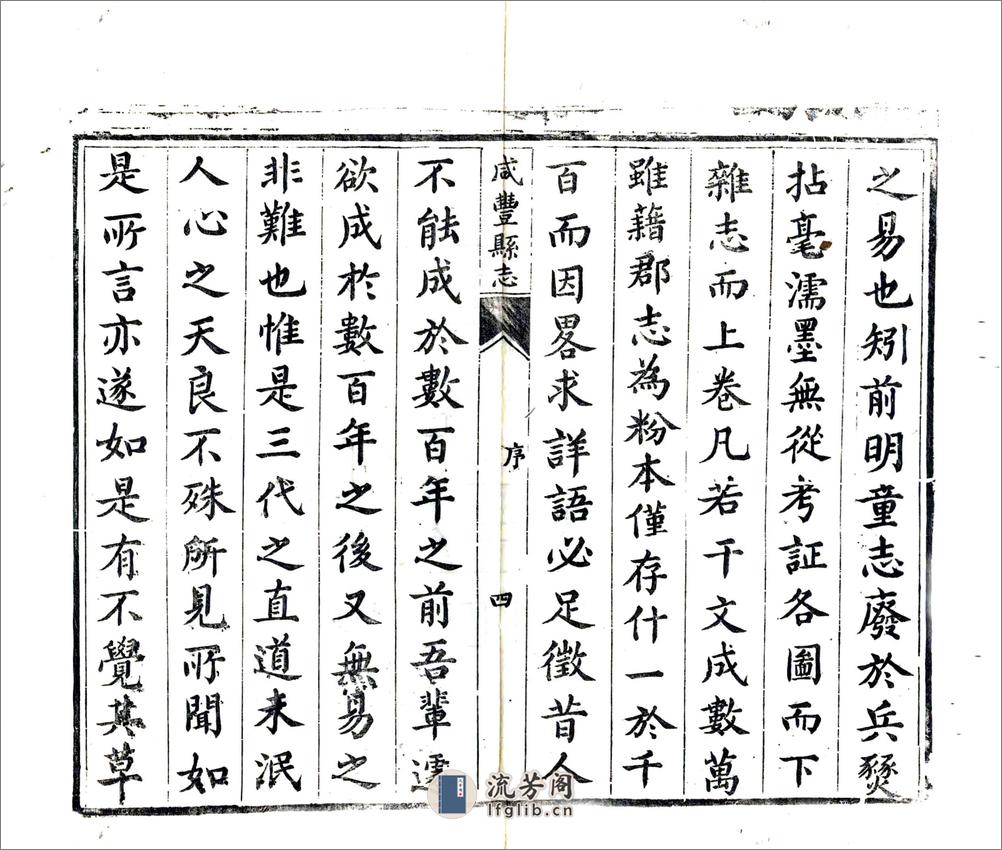 之易也矧前明童志廢於兵燹
拈毫濡墨無從考証各圖而下
雜志而上卷凡若干文成數萬
雖藉郡志為粉本僅存什一於千
百而因畧求詳語必足徵昔人
咸豐縣志 序 四
不能成於數百年之前吾輩遽
欲成於數百年之後又無易之
非難也惟是三代之直道未泯
人心之天良不殊所見所聞如
是所言亦遂如是有不覺其草
流芳阁
lfglib.cn